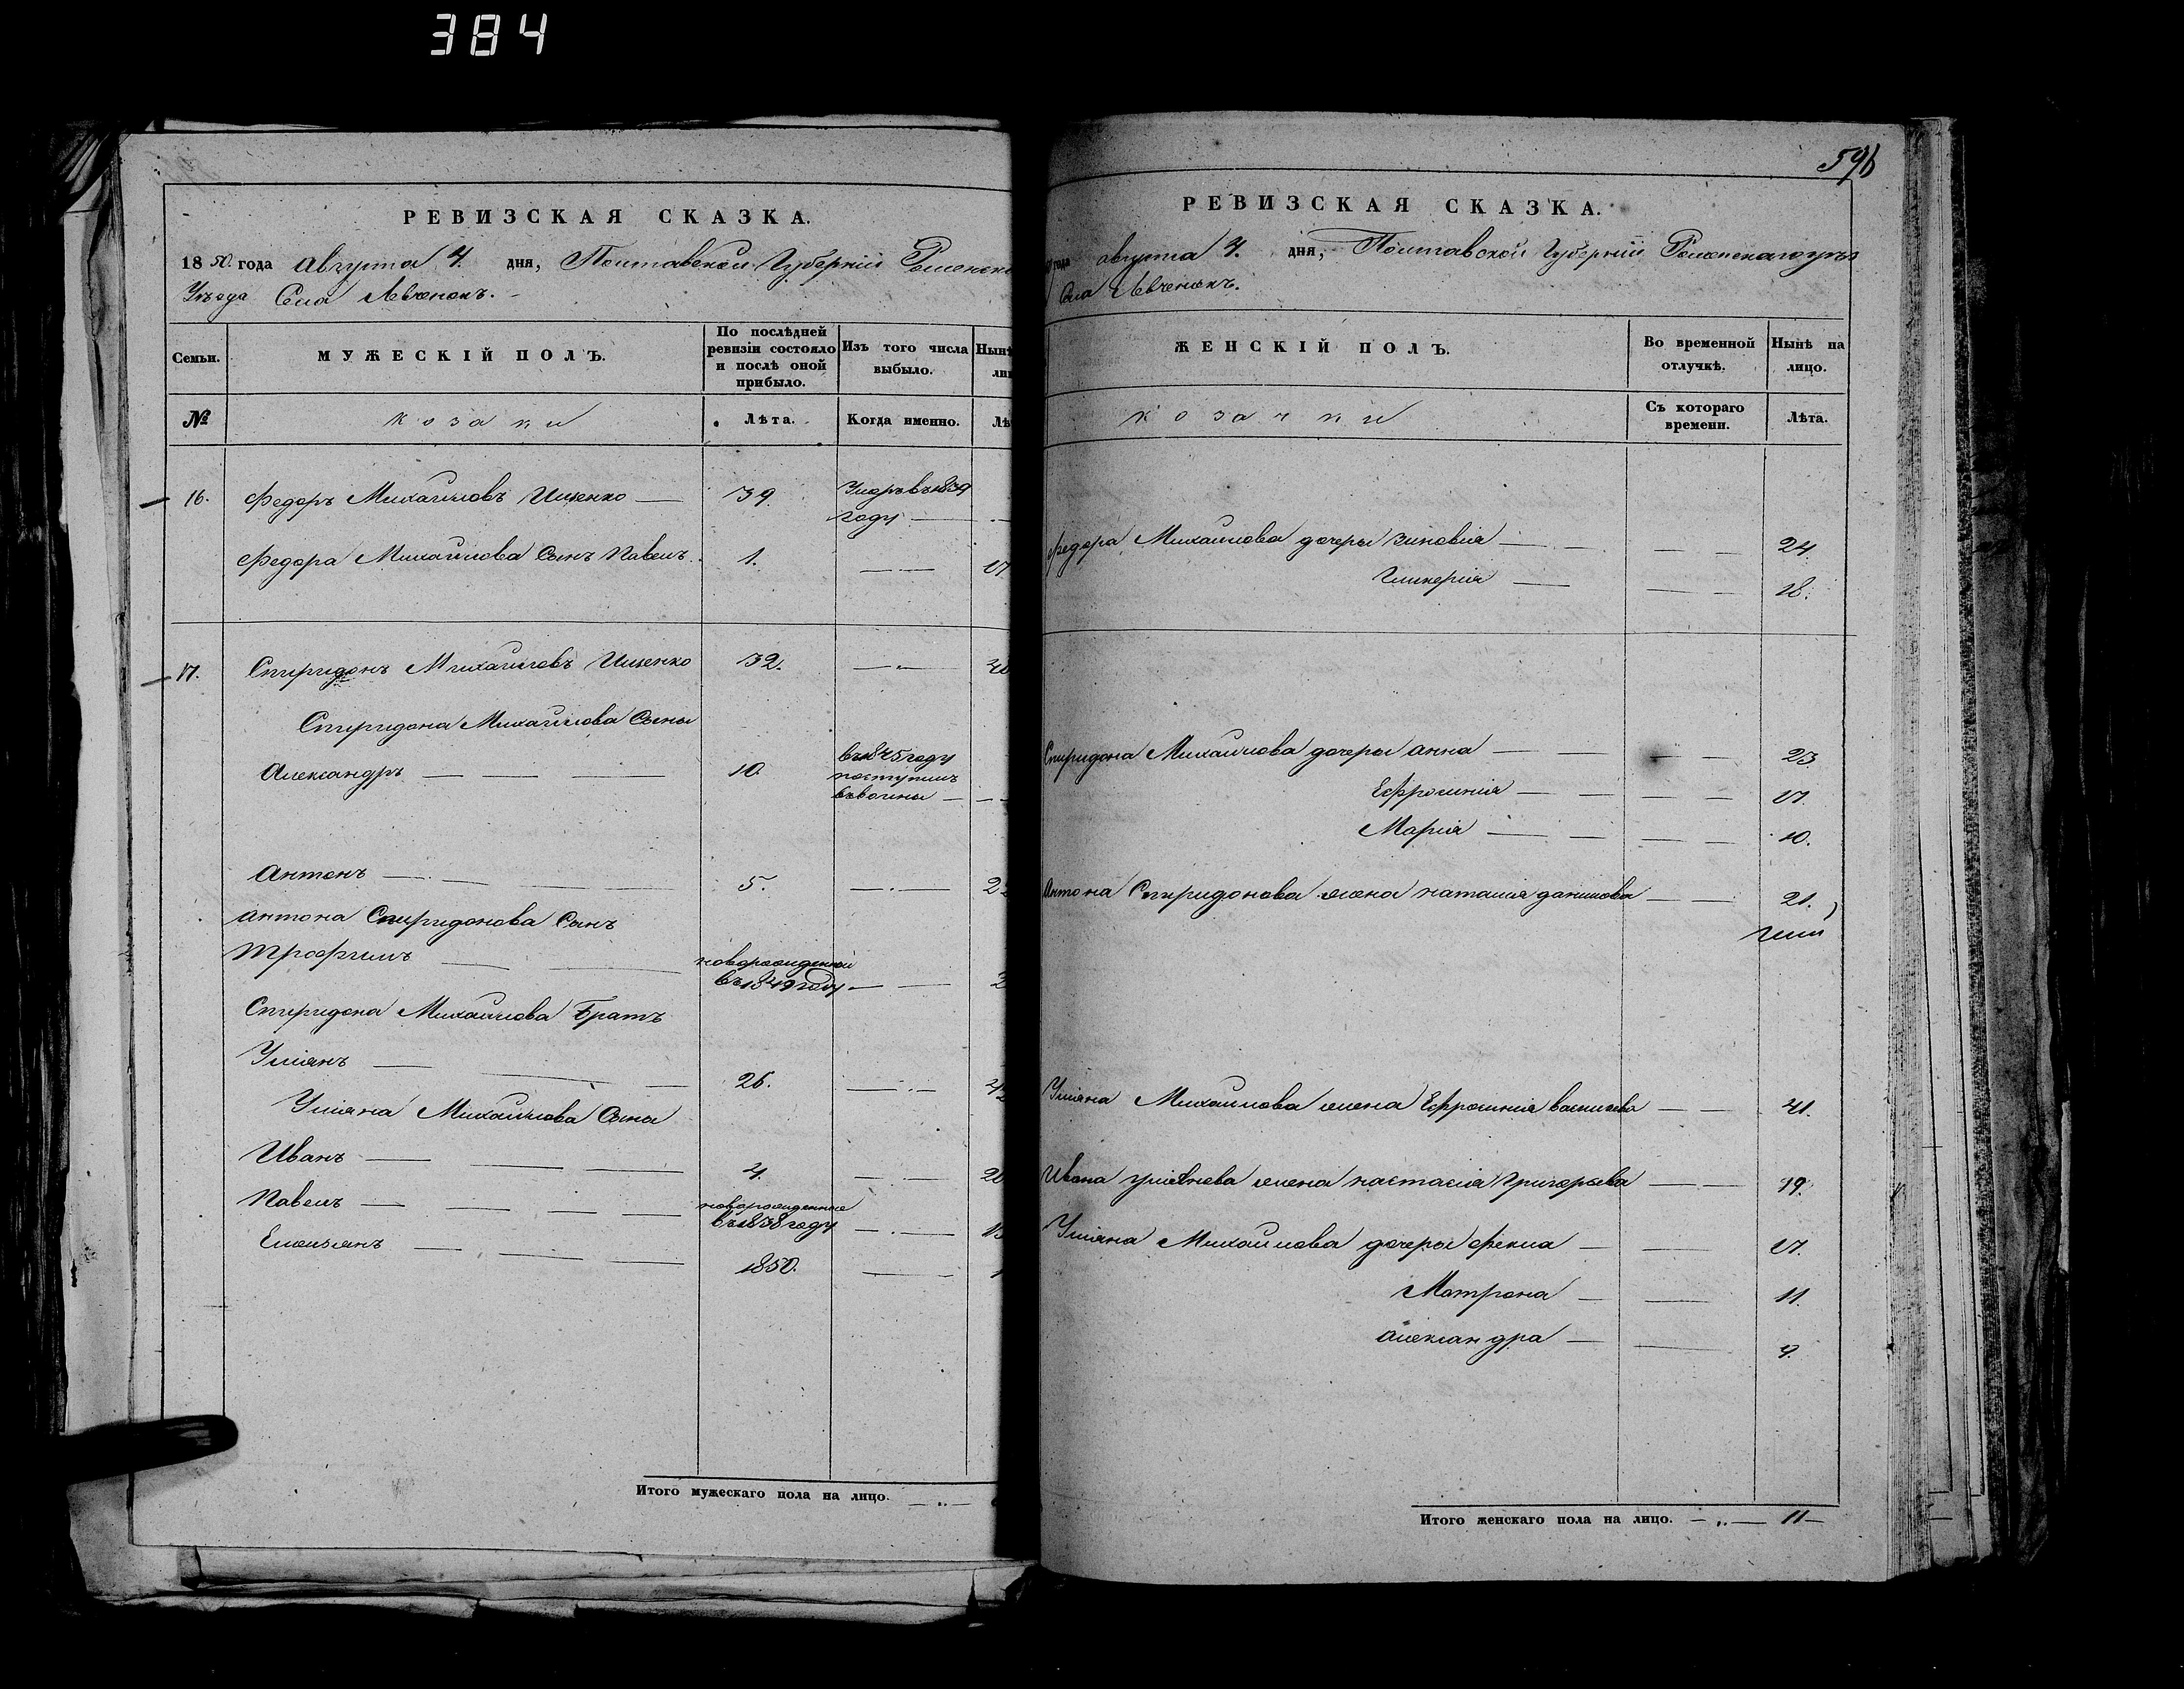 384
РЕВИЗСКАЯ СКАЗКА.
18 50. года августа 4. дня, Полтавской Губерніи Роменск
Уѣзда Села Левченокъ.
Семьи.
МУЖЕСКІЙ ПОЛЪ.
По послѣдней
ревизіи состояло
и послѣ оной
прибыло.
Изъ того числа
выбыло.
Нынѣ
ли
№
козаки
Лѣта.
Когда именно.
Лѣ
16. Федоръ Михайловъ Ищенко 39. Умеръ въ 1839
году
Федора Михайлова Сынъ Павелъ. 1. 17
17. Спиридонъ Михайловъ Ищенко 32.
Спиридона Михайлова Сыны
Александръ 10. въ 1845 году
поступилъ
въ воины
Антонъ 5. 2
Антона Спиридонова Сынъ
Трофимъ новорожденный
въ 1849 году 2
Спиридона Михайлова Братъ
Уліянъ 26. 42
Уліяна Михайлова Сыны
Иванъ 4. 20
Павелъ новорожденные
въ 1838 году 13
Емельянъ 1850. 1
Итого мужескаго пола на лицо.
596
РЕВИЗСКАЯ СКАЗКА.
года августа 4. дня, Полтавской Губерніи Роменскаго уѣз
Села Левченокъ.
ЖЕНСКІЙ ПОЛЪ.
Во временной
отлучкѣ.
Нынѣ на
лицо.
козачки
Съ котораго
времени.
Лѣта.
Федора Михайлова дочеры Зиновія 24.
Гликерія 18.
Спиридона Михайлова дочеры Анна 23.
Ефросинія 17.
Марія 10.
Антона Спиридонова жена Наталія Данилова 21.
Уліяна Михайлова жена Ефросинія Васильева 41.
Ивана Уліянова жена Настасія Григорьева 19.
Уліяна Михайлова дочеры Фекла 17.
Матрона 11.
Александра 4.
Итого женскаго пола на лицо. 11